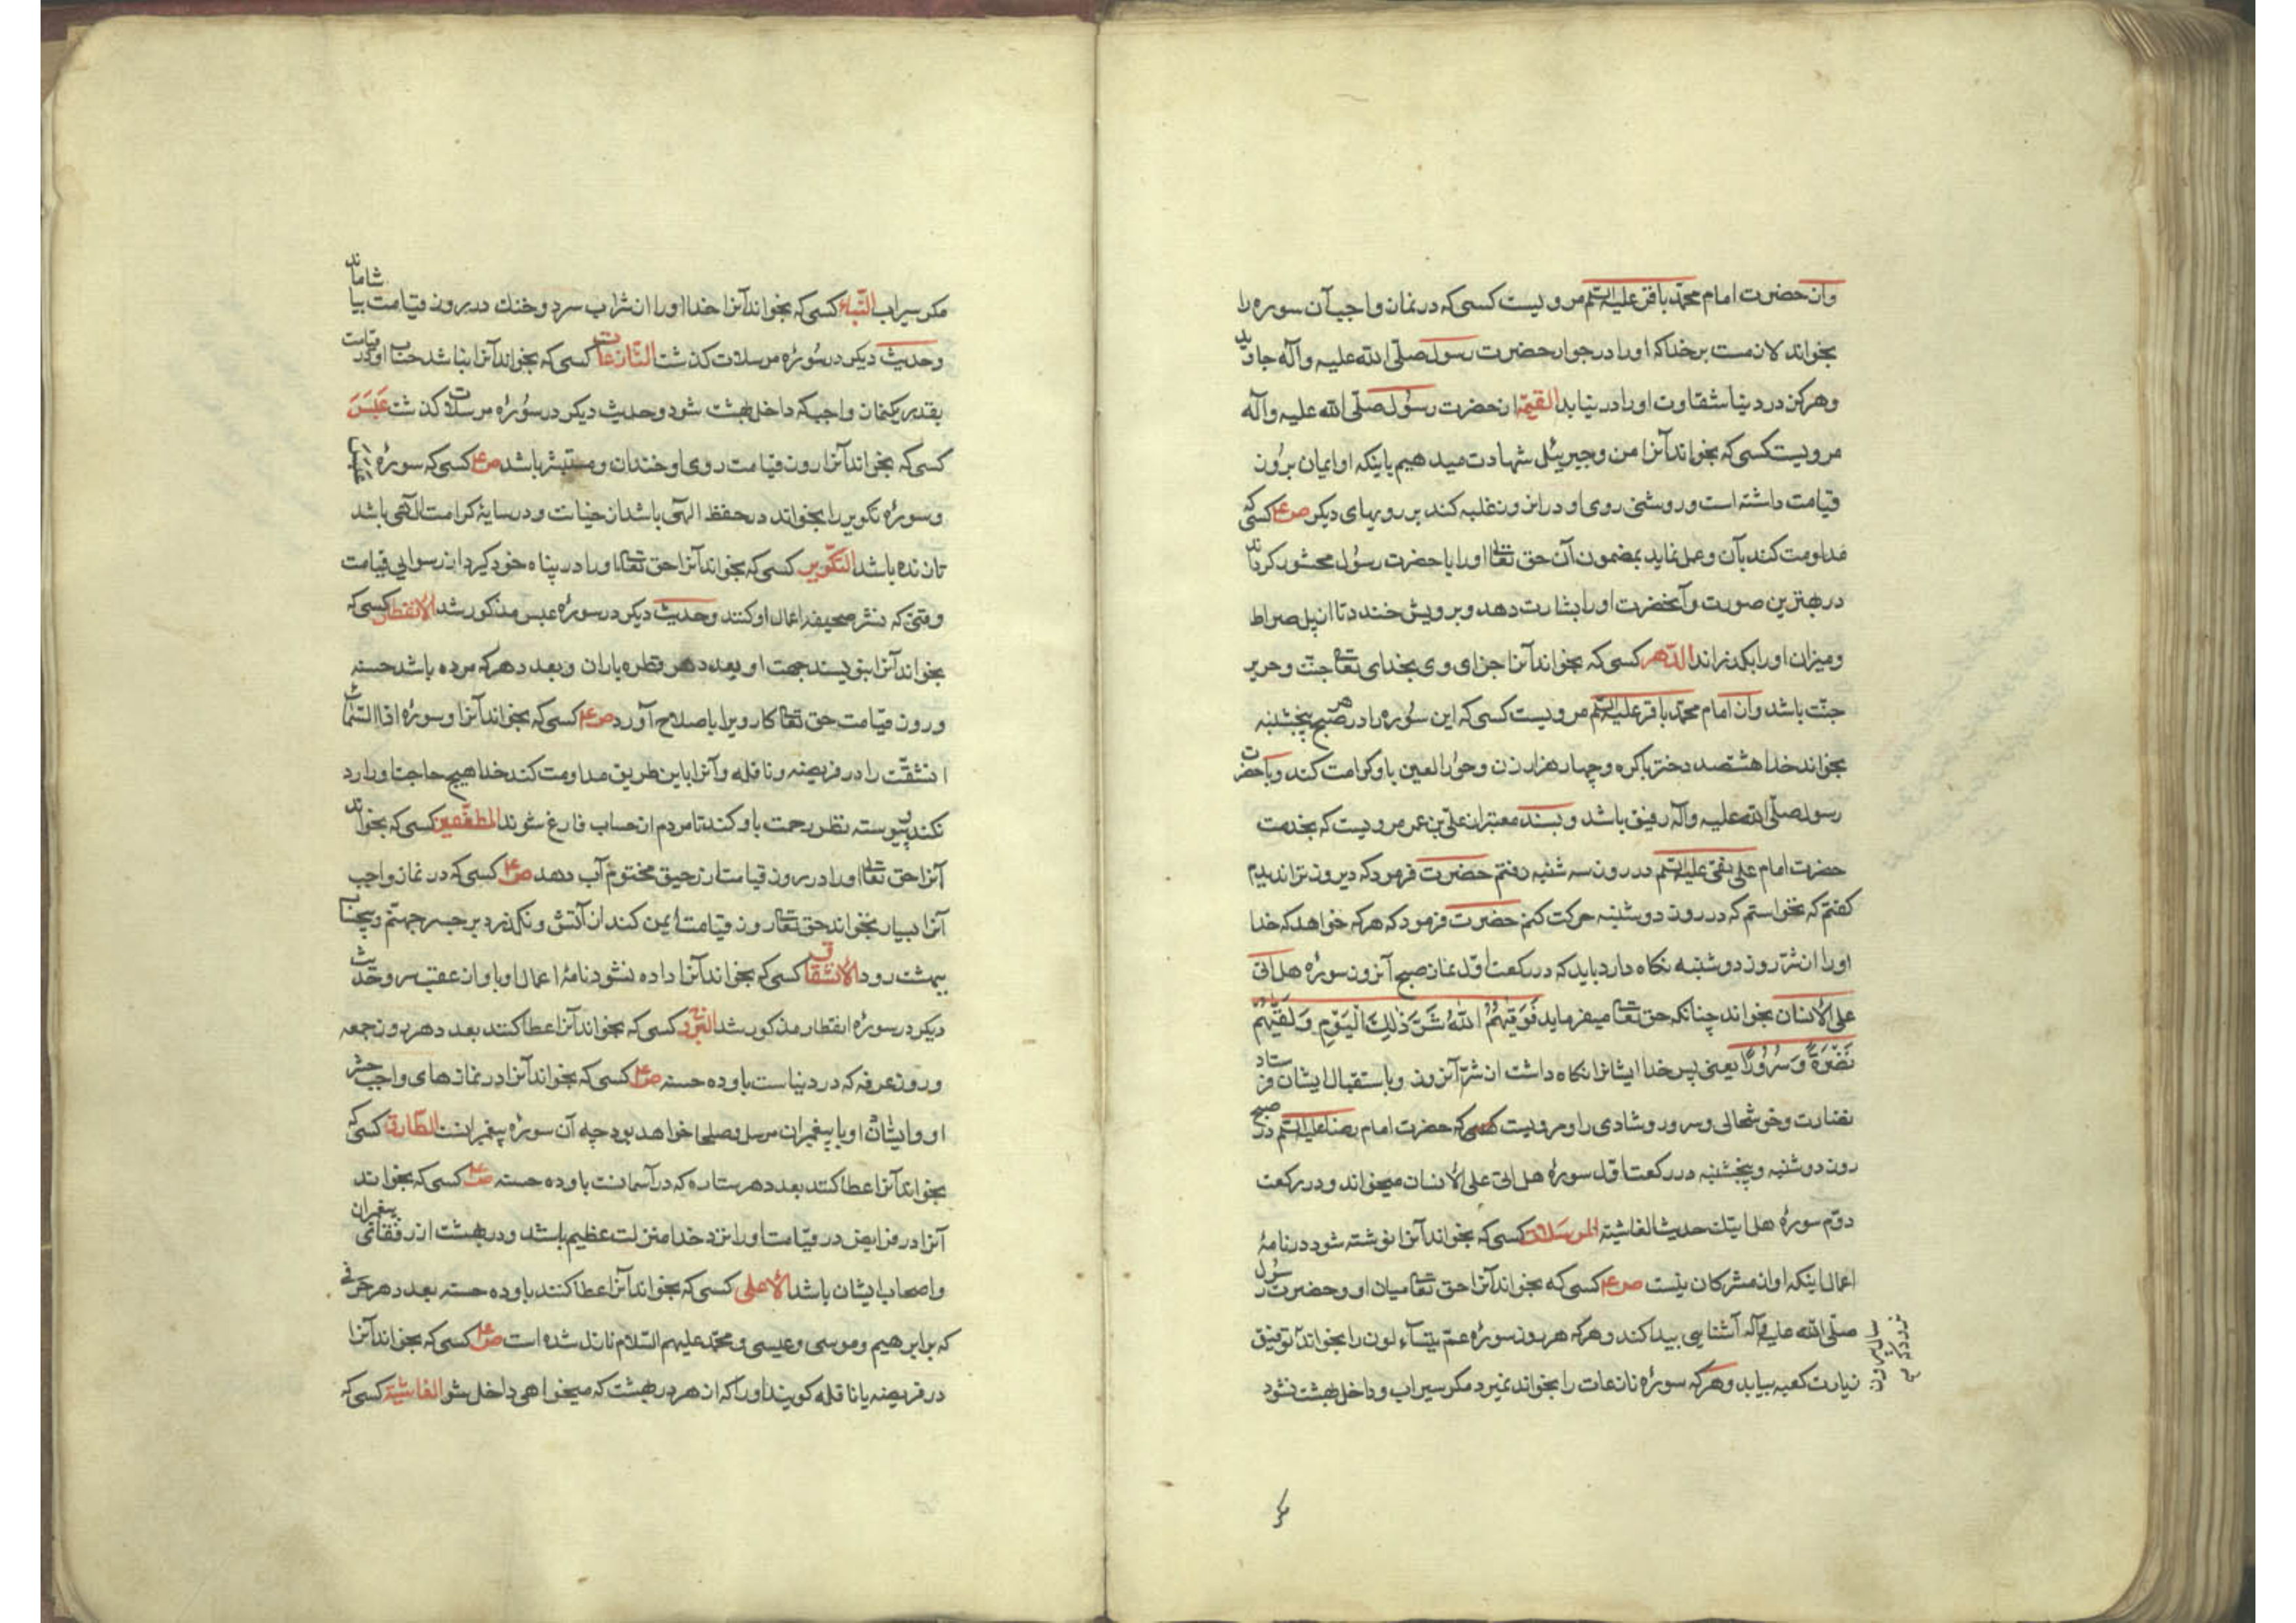 وان حضرت امام محمد باقر علیه السلم مرویست کسی که در نماز واجب آن سوره را
بخواند لازمست بر خدا که او را در جوار حضرت رسول صلی الله علیه وآله جا دهد
وهرکز در دنیا شقاوت او را در نیابد القیمة از حضرت رسول صلی الله علیه وآله
مرویست کسی که بخواند آنرا من وجبرییل شهادت میدهیم باینکه او ایمان بروز
قیامت داشته است وروشنی روی او در آنروز غلبه کند بر رویهای دیکر ص ع کسی که
مداومت کند بآن وعمل نماید بمضمون آن حق تعا او را با حضرت رسول محشور کرداند
در بهترین صورت وآنحضرت او را بشارت دهد وبرویش خندد تا از پل صراط
ومیزان او را بکذراند الدهر کسی که بخواند آنرا جزای وی بخدای تعا جنت وحریر
جنت باشد وان امام محمد باقر علیه السلم مرویست کسی که این سوره را در هر صبح پنجشنبه
بخواند خدا هشتصد دختر باکره وچهار هزار زن وحور العین باو کرامت کند وبا حضرت
رسول صلی الله علیه وآله رفیق باشد وبسند معتبر از علی بن عمر مرویست که بخدمت
حضرت امام علی نقی علیه السلم در روز سه شنبه رفتم حضرت فرمود که دیروز ترا ندیدم
کفتم که نخواستم که در روز دوشنبه حرکت کنم حضرت فرمود که هرکه خواهد که خدا
او را از شر روز دوشنبه نکاه دارد باید که در رکعت اول نماز صبح آنروز سوره هل اتی
علی الانسان بخواند چنانکه حق تعا میفرماید فَوَقٰیهُمُ اللّٰهُ شَرَّ ذٰلِكَ الْیَوْمِ وَلَقّٰیهُمْ
نَضْرَةً وَسُرُورًا یعنی پس خدا ایشانرا نکاه داشت از شر آنروز وباستقبال ایشان فرستاد
نضارت وخوشحالی وسرور وشادی را ومرویست که حضرت امام رضا علیه السلم در صبح
روز دوشنبه وپنجشنبه در رکعت اول سوره هل اتی علی الانسان میخواند ودر رکعت
دوم سوره هل اتیك حدیث الغاشیة المرسلات کسی که بخواند آنرا نوشته شود در نامۀ
اعمال اینکه او از مشرکان نیست ص ع کسی که بخواند آنرا حق تعا میان او وحضرت رسول
صلی الله علیه وآله آشنایی پیدا کند وهرکه هر روز سوره عم یتساءلون را بخواند توفیق
زیارت کعبه بیابد وهرکه سوره نازعات را بخواند نمیرد مکر سیراب وداخل بهشت نشود
مکر
مکر سیراب النباء کسی که بخواند آنرا خدا او را از شراب سرد وخنك در روز قیامت بیاشاماند
وحدیث دیکر در سورۀ مرسلات کذشت النازعات کسی که بخواند آنرا نباشد حساب او در قیامت
بقدر یکنماز واجب که داخل بهشت شود وحدیث دیکر در سورۀ مرسلات کذشت عَبَسَ
کسی که بخواند آنرا روز قیامت روی او خندان ومستبشر باشد ص ع کسی که سوره عبس را
وسوره تکویر را بخواند در حفظ الهی باشد از خیانت ودر سایۀ کرامت الهی باشد
تا زنده باشد التکویر کسی که بخواند آنرا حق تعا او را در پناه خود کیرد از رسوایی قیامت
وقتی که نشر صحیفۀ اعمال او کنند وحدیث دیکر در سورۀ عبس مذکور شد الانفطار کسی که
بخواند آنرا بنویسند جهت او بعدد هر قطره باران وبعدد هر که مرده باشد حسنه
وروز قیامت حق تعا کار ویرا باصلاح آورد ص ع کسی که بخواند آنرا وسورۀ اذا السماء
انشقت را در فریضه ونافله وآنرا باین طریق مداومت کند خدا هیچ حاجت او را رد
نکند وپیوسته نظر رحمت باو کند تا مردم از حساب فارغ شوند المطففین کسی که بخواند
آنرا حق تعا او را در روز قیامت از رحیق مختوم آب دهد ص ع کسی که در نماز واجب
آنرا بسیار بخواند حق تعا روز قیامت ایمن کند از آتش ونکذرد بر جسر جهنم وبیحساب
ببهشت رود الانشقاق کسی که بخواند آنرا داده نشود نامۀ اعمال او باو از عقب سر وحدیث
دیکر در سورۀ انفطار مذکور شد البروج کسی که بخواند آنرا عطا کنند بعدد هر روز جمعه
وروز عرفه که در دنیاست باو ده حسنه ص ع کسی که بخواند آنرا در نمازهای واجب حشر
او وایشان او با پیغمبران مرسل وصلحا خواهد بود چه آن سورۀ پیغمبرانست الطارق کسی که
بخواند آنرا عطا کنند بعدد هر ستاره که در آسمانست باو ده حسنه ص ع کسی که بخواند
آنرا در فرایض در قیامت او را نزد خدا منزلت عظیم باشد ودر بهشت از رفقای پیغمبران
واصحاب ایشان باشد الاعلی کسی که بخواند آنرا عطا کنند باو ده حسنه بعدد هر حرفی
که بر ابراهیم وموسی وعیسی ومحمد علیهم السلام نازل شده است ص ع کسی که بخواند آنرا
در فریضه یا نافله کویند او را که از هر در بهشت که میخواهی داخل شو الغاشیة کسی که